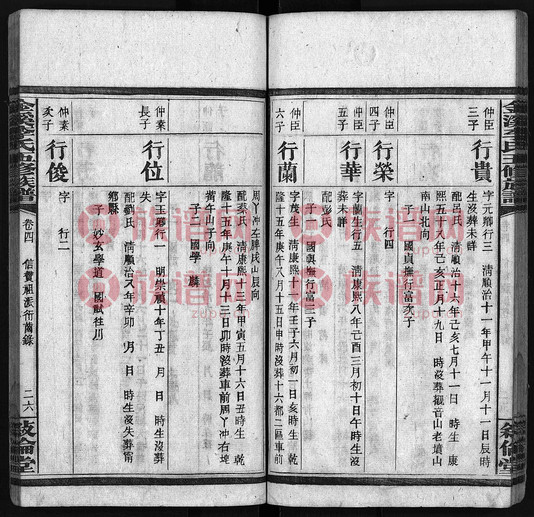 仲臣
三子
行貴
字元卿行三 清順治十一年甲午十一月十一日辰時
生沒葬未詳
配呂氏 清順治十六年己亥七月十一日 時生 康
熙五十八年己亥正月十九日 時沒葬觀音山老墳山
南山北向
子 國貞撫行富次子
仲臣
四子
行榮
字 行四
仲臣
五子
行華
行五 清康熙八年己酉三月初十日午時生沒
葬未詳
配彭氏
子 國興撫行富三子
仲臣
六子
行蘭
字茂生 清康熙十一年壬子六月初一日亥時生 乾
隆十五年庚午八月十五日申時沒葬十六都二區車前
周丫冲左脾戌山辰向
配蔡氏 清康熙十三年甲寅五月十六日丑時生 乾
隆十五年庚午十月十三日卯時沒葬車前周丫冲右埤
山子向
子 國學 國麟
仲業
長子
行位
字玉卿行一 明崇禎十年丁丑 月 日 時生沒葬
失
配劉氏 清順治八年辛卯 月 日 時生沒失葬甯
鄉縣
子 妙玄學道 國猷往川
仲業
次子
行俊
字 行二
卷四
信貴祖派衍蘭錄
二六
敍倫堂